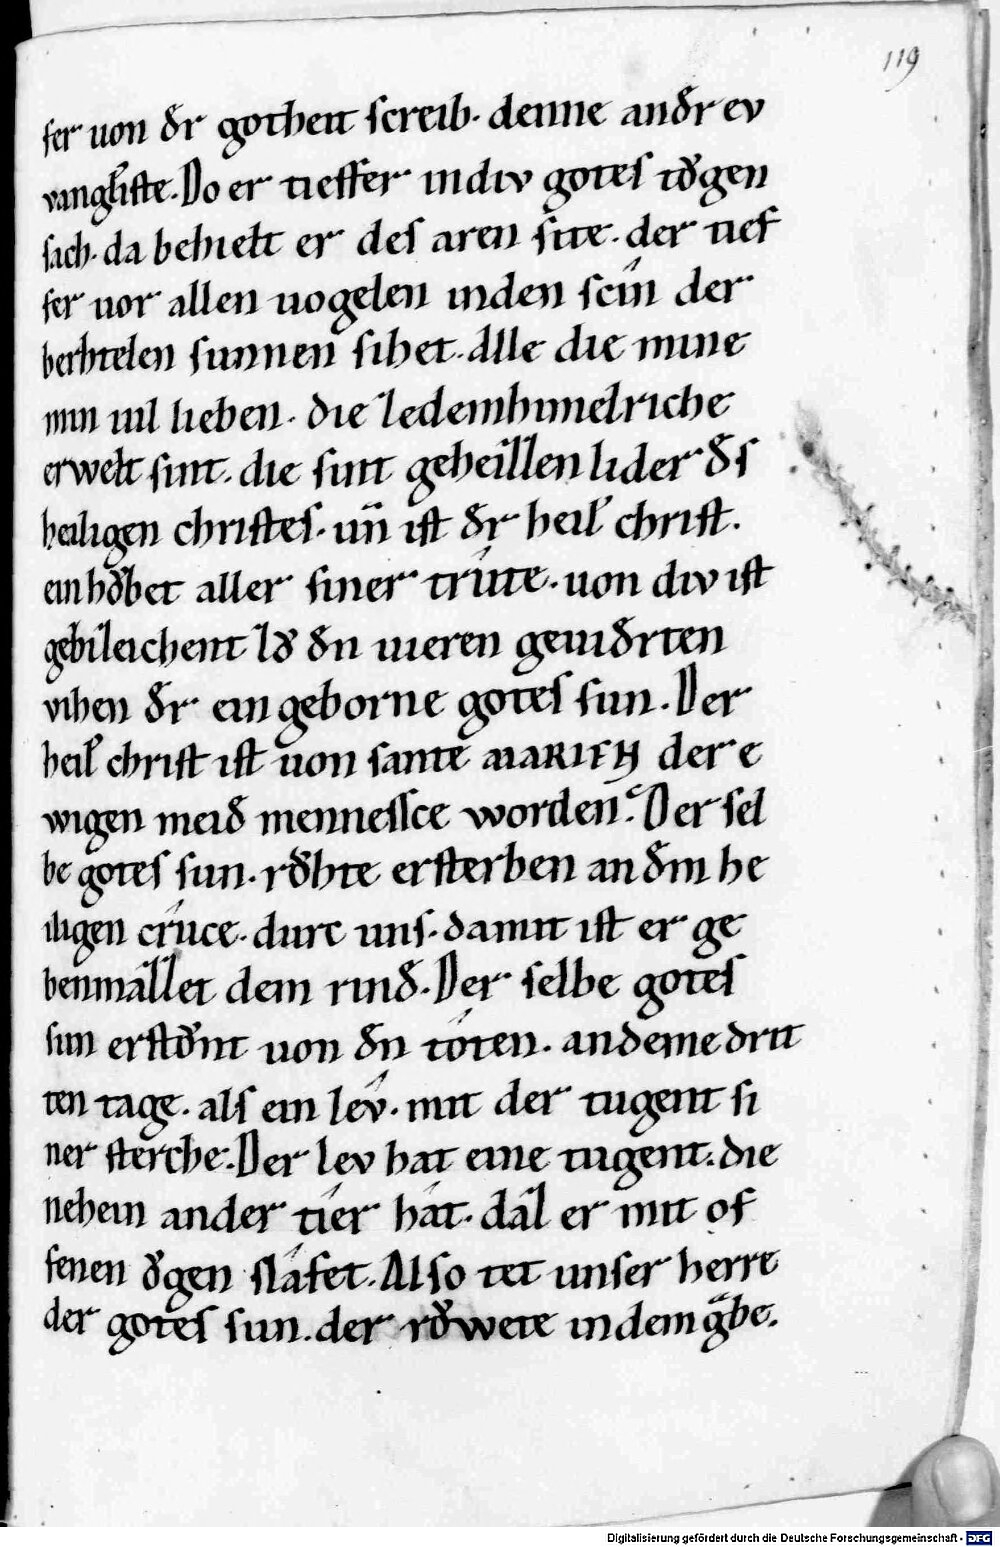 119
fer von dͤr gotheit screib. denne andͤr ev
vangl̄iste. Do er tieffer in div gotes tǒgen
sach. da behielt er des aren site. der tief
fer vor allen vogelen in den scín der
berhtelen sunnen sihet. Alle die mine
min uil lieben. die ze dem himelriche
erwelt sint. die sint geheizzen lider dͤs
heiligen christes. un̄ ist dͤr heil̄ christ.
ein hǒbet aller siner trúte. von div ist
gebileichent zǒ dͤn uieren geuidͤrten
vihen dͤr ein geborne gotes sun. Der
heil̄ christ ist von sante MARIEN der e
wigen meidͤ mennessce worden. Der sel
be gotes sun. rǒhte ersterben an dͤm he
iligen crúce. durc uns. da mit ist er ge
benmazzet dem rindͤ. Der selbe gotes
sun erstǒnt von dͤn tóten. an deme drit
ten tage. als ein lév. mit der tugent si
ner sterche. Der lev hat eine tugent. die
nehein ander tíer hát. daz er mit of
fenen ǒgen sláfet. Also tet unser herre
der gotes sun. der rǒwete in dem gᵃbe.
Digitalisierung gefördert durch die Deutsche Forschungsgemeinschaft - DFG